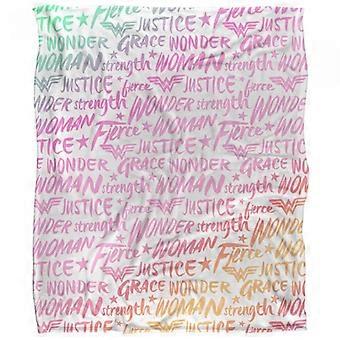 JUSTICE ★ fierce WONDER
WONDER GRACE WOMAN
WONDER strength WOMAN
WOMAN Fierce ★ JUSTICE
JUSTICE ★ fierce
WONDER GRACE WONDER
WOMAN strength WOMAN
JUSTICE ★ fierce
WONDER GRACE WONDER
WOMAN strength WOMAN
WOMAN Fierce ★
JUSTICE ★ fierce
WONDER GRACE WONDER
WOMAN strength